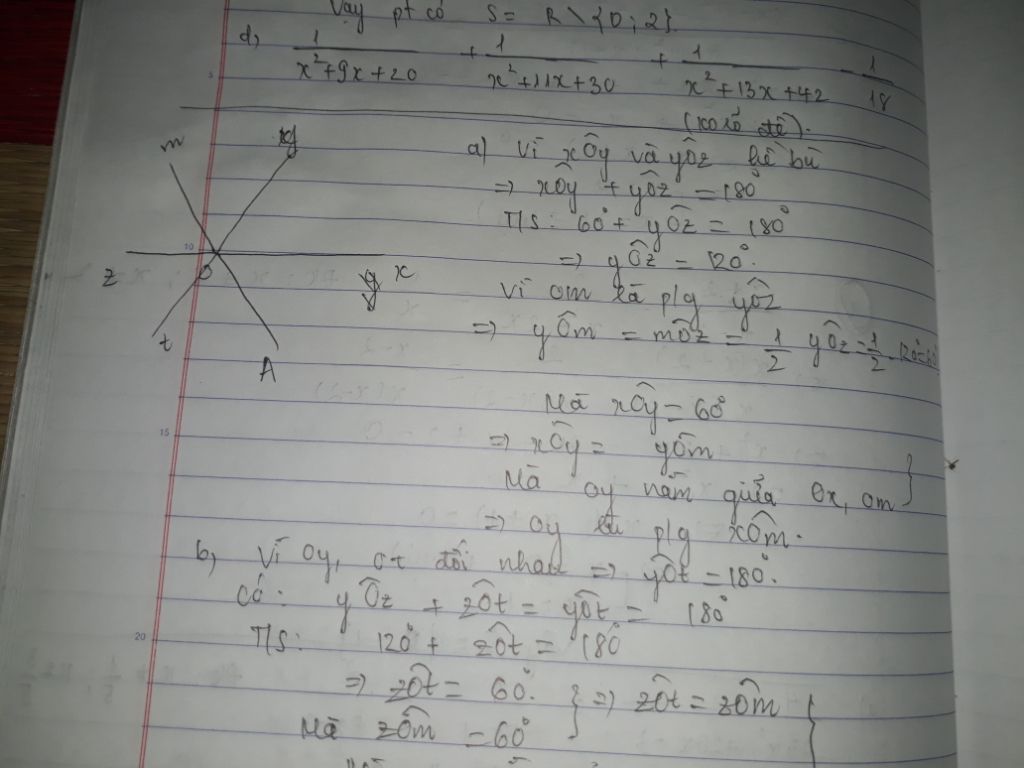 Vậy pt có S = R \ {0; 2}.
d, 1/(x²+9x+20) + 1/(x²+11x+30) + 1/(x²+13x+42) = 1/18
đề).
m
y
z
O
x
y
t
A
a) Vì xÔy và yÔz kề bù
=> xÔy + yÔz = 180°
T/S: 60° + yÔz = 180°
=> yÔz = 120°.
Vì om là p/g yÔz
=> yÔm = mÔz = 1/2 yÔz = 1/2 . 120° = 60°
Mà xÔy = 60°
=> xÔy = yÔm
Mà oy nằm giữa Ox, om }
=> oy là p/g xÔm.
b, Vì Oy, ot đối nhau => yÔt = 180°.
Có: yÔz + zÔt = yÔt = 180°
T/S: 120° + zÔt = 180°
=> zÔt = 60°. } => zÔt = zÔm }
Mà zÔm = 60°